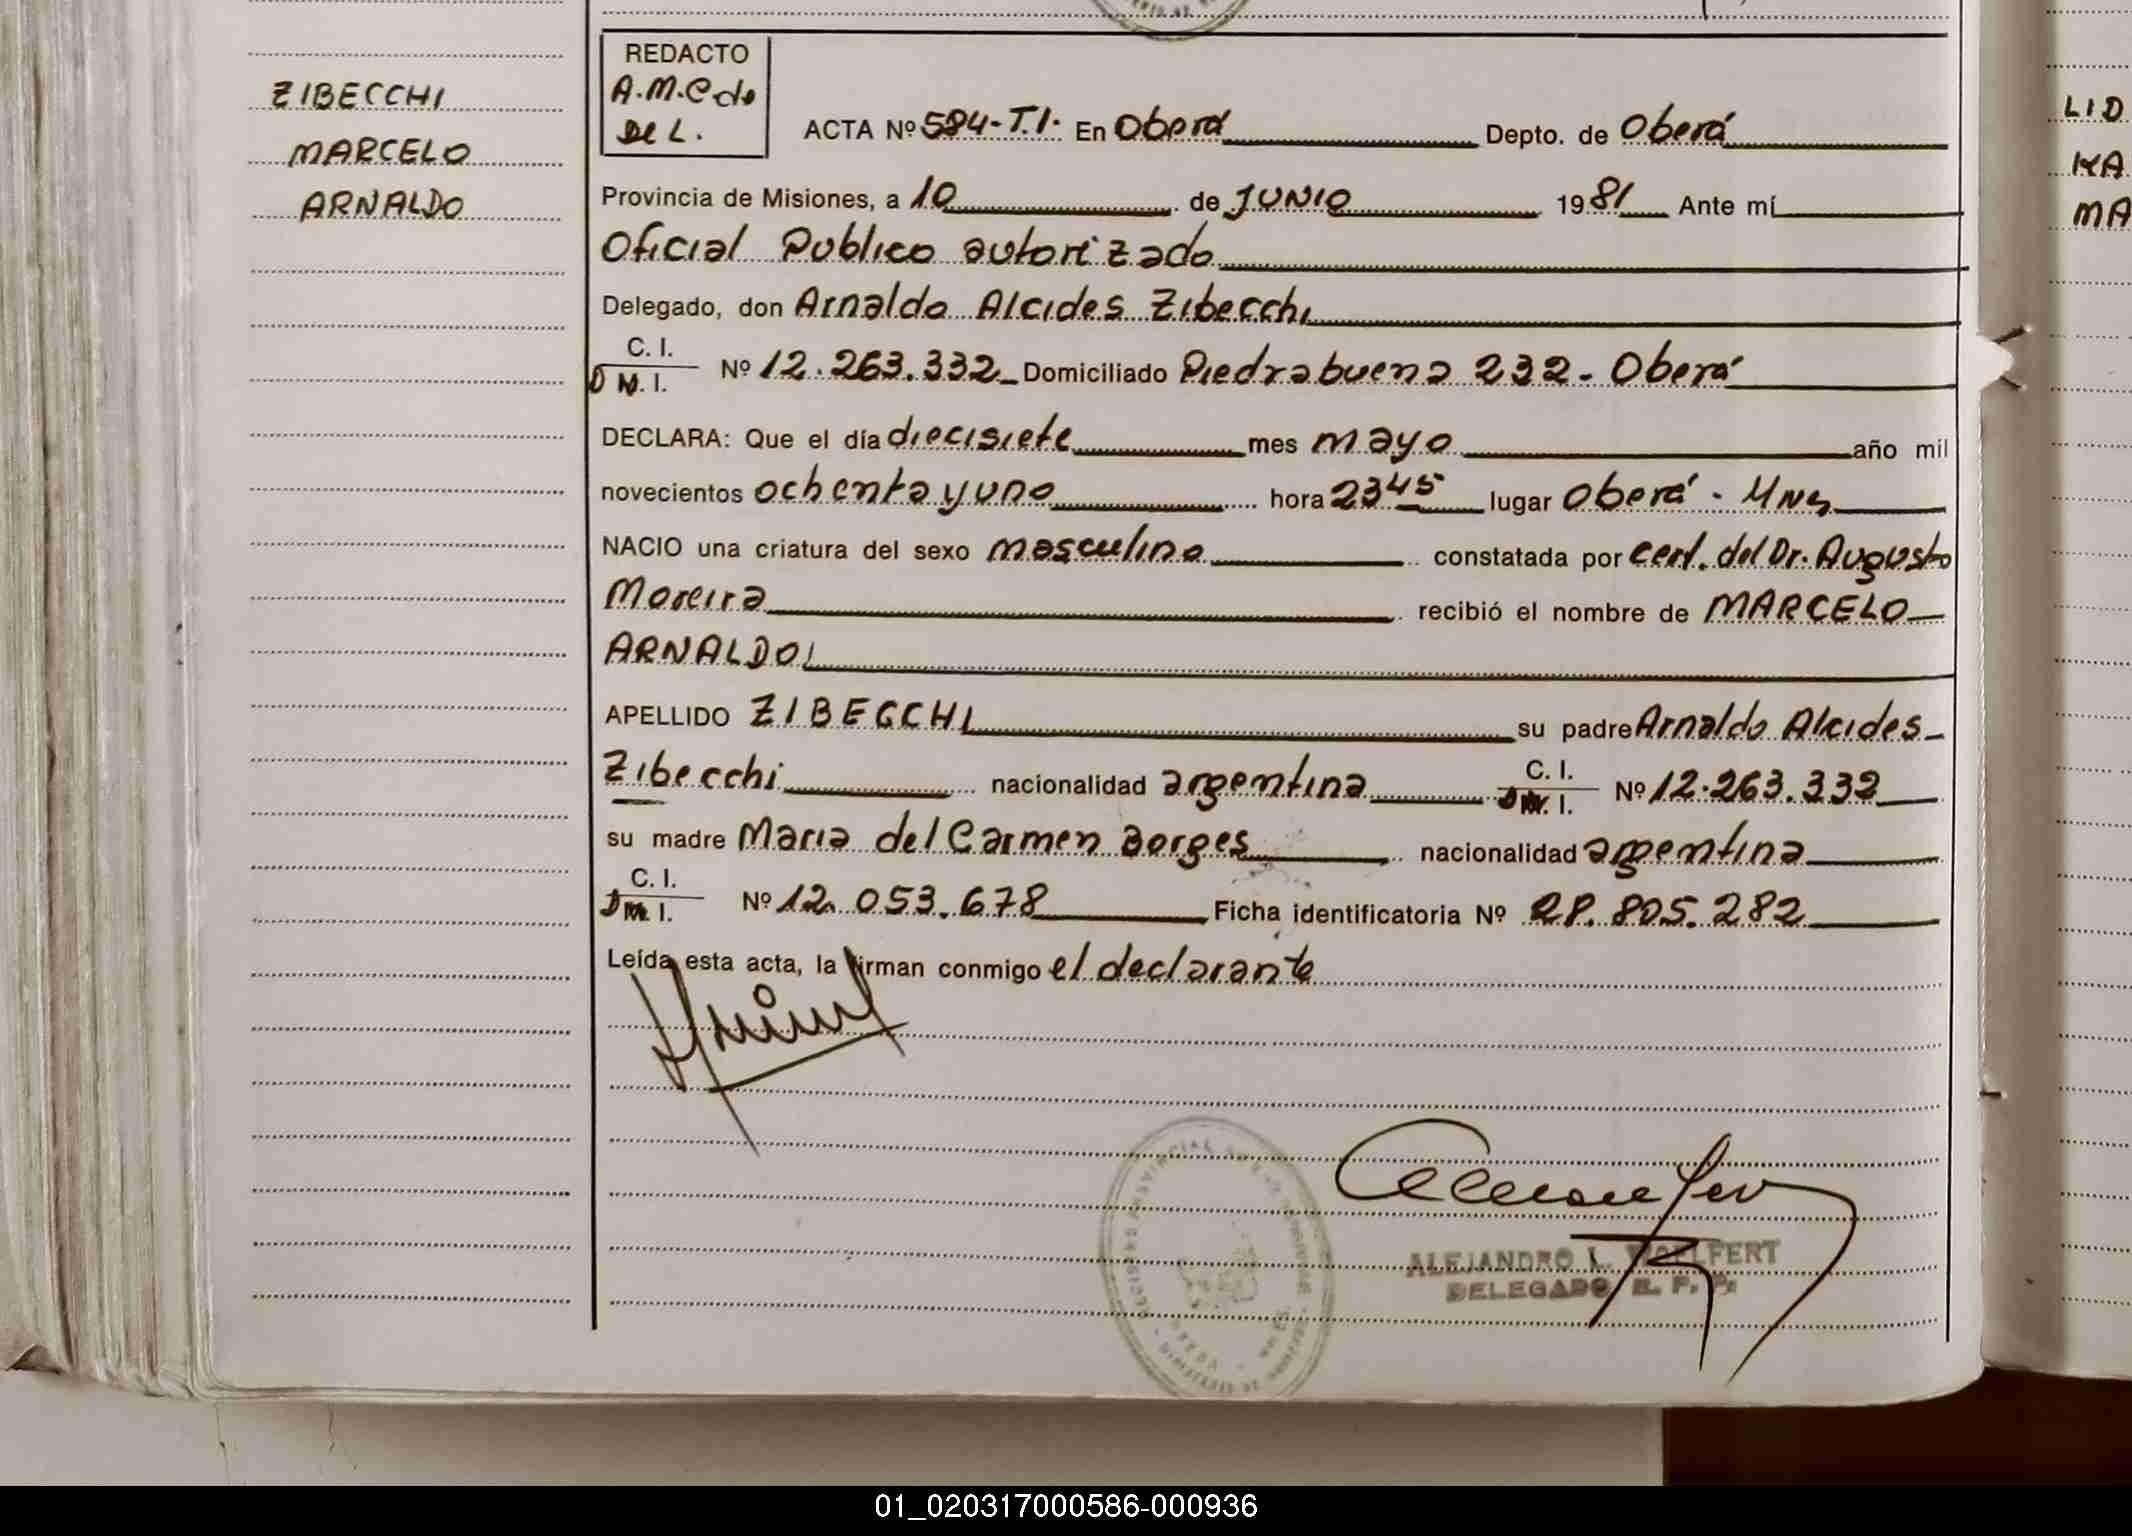 ZIBECCHI
MARCELO
ARNALDO
REDACTO
A.M.C de
De L.
ACTA Nº 584-T.I. En Oberá Depto. de Oberá
Provincia de Misiones, a 10 de JUNIO 1981 Ante mí
Oficial Publico autorizado
Delegado, don Arnaldo Alcides Zibecchi
C. I.
D N. I. Nº 12.263.332 Domiciliado Piedrabuena 232 - Oberá
DECLARA: Que el día diecisiete mes mayo año mil
novecientos ochenta y uno hora 2345 lugar Oberá - Mns
NACIO una criatura del sexo masculino constatada por cert. del Dr. Augusto
Moreira recibió el nombre de MARCELO
ARNALDO
APELLIDO ZIBECCHI su padre Arnaldo Alcides
Zibecchi nacionalidad argentina C. I. D N. I. Nº 12.263.332
su madre Maria del Carmen Borges nacionalidad argentina
C. I.
D N. I. Nº 12.053.678 Ficha identificatoria Nº 28.805.282
Leída esta acta, la firman conmigo el declarante
ALEJANDRO L. WOELFERT
DELEGADO R. P. P.
LID
KA
MA
01_020317000586-000936